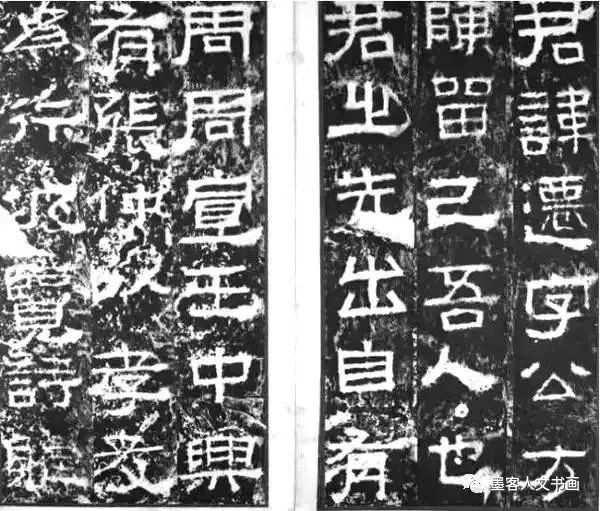 君諱遷字公方
陳留己吾人也
君之先出自有
周周宣王中興
有張仲以孝友
為行披覽詩雅
墨客人文书画